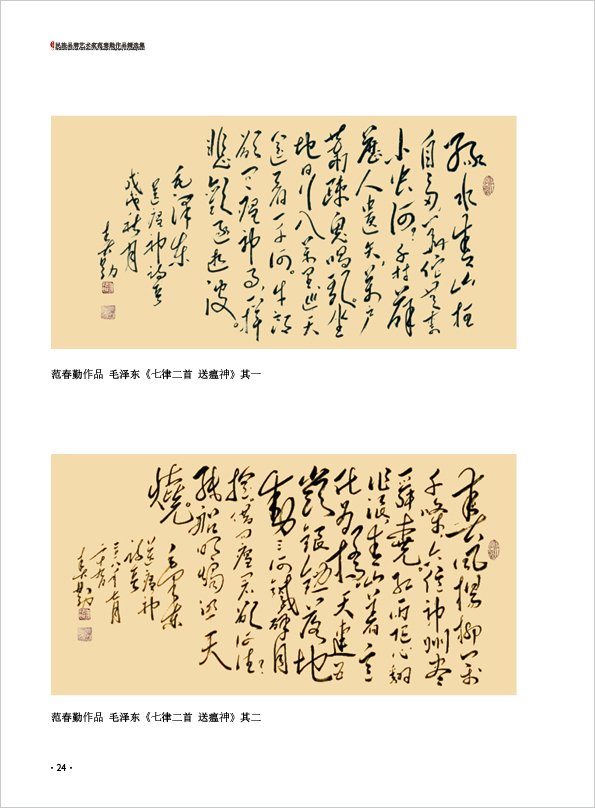 民族品牌艺术家范春勤作品精选集
绿水青山枉
自多华佗无奈
小虫何千村薜
荔人遗矢万户
萧疏鬼唱歌坐
地日行八万里巡天
遥看一千河牛郎
欲问瘟神事一样
悲欢逐逝波。
毛泽东
送瘟神诗意
戊戌秋月
春勤
范春勤作品 毛泽东《七律二首 送瘟神》其一
春风杨柳万
千条六亿神州尽
舜尧红雨随心翻
作浪青山着意
化为桥天连五
岭银锄落地
动三河铁臂
摇借问瘟君欲何往
纸船明烛照天
烧
毛泽东
送瘟神
诗意
春勤
范春勤作品 毛泽东《七律二首 送瘟神》其二
· 24 ·